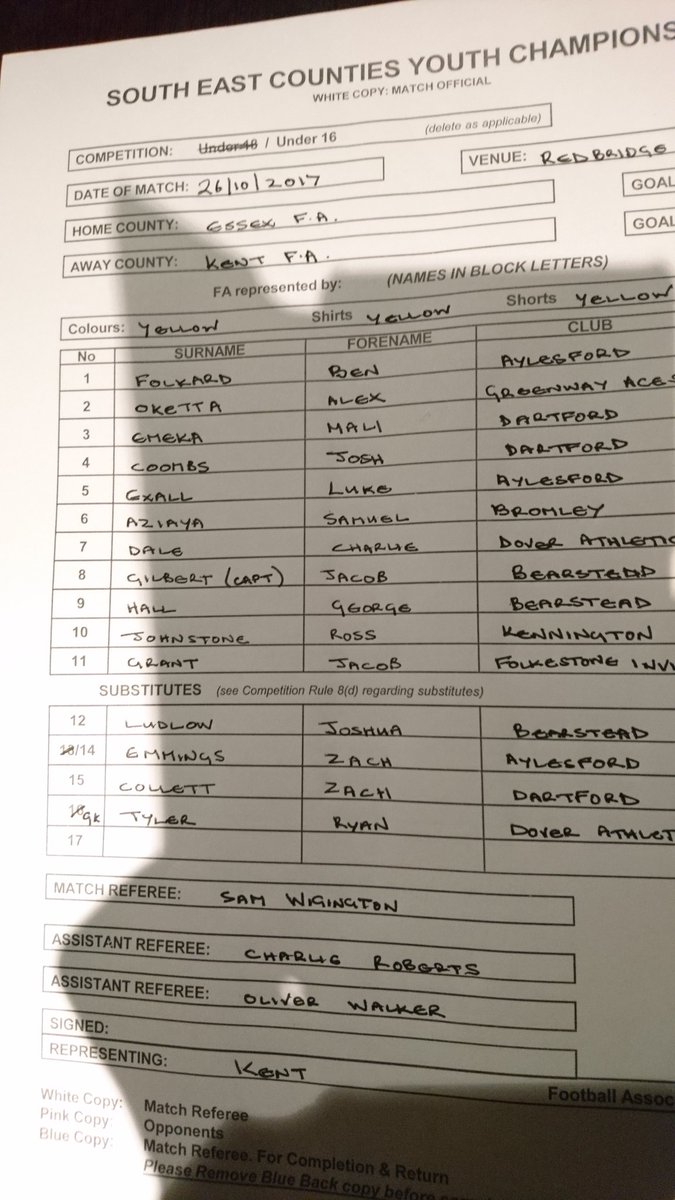 SOUTH EAST COUNTIES YOUTH CHAMPIONS
WHITE COPY: MATCH OFFICIAL
COMPETITION: Under 18 / Under 16 (delete as applicable)
DATE OF MATCH: 26/10/2017 VENUE: REDBRIDGE
HOME COUNTY: ESSEX F.A. GOAL
AWAY COUNTY: KENT F.A. GOAL
FA represented by: (NAMES IN BLOCK LETTERS)
Colours: YELLOW Shirts YELLOW Shorts YELLOW
No SURNAME FORENAME CLUB
1 FOLKARD BEN AYLESFORD
2 OKETTA ALEX GREENWAY ACES
3 EMEKA MALI DARTFORD
4 COOMBS JOSH DARTFORD
5 EXALL LUKE AYLESFORD
6 AZIAYA SAMUEL BROMLEY
7 DALE CHARLIE DOVER ATHLETIC
8 GILBERT (CAPT) JACOB BEARSTEAD
9 HALL GEORGE BEARSTEAD
10 JOHNSTONE ROSS KENNINGTON
11 GRANT JACOB FOLKESTONE INVI
SUBSTITUTES (see Competition Rule 8(d) regarding substitutes)
12 LUDLOW JOSHUA BEARSTEAD
13/14 EMMINGS ZACH AYLESFORD
15 COLLETT ZACH DARTFORD
16 GK TYLER RYAN DOVER ATHLET
17
MATCH REFEREE: SAM WIGINGTON
ASSISTANT REFEREE: CHARLIE ROBERTS
ASSISTANT REFEREE: OLIVER WALKER
SIGNED:
REPRESENTING: KENT
Football Assoc
White Copy: Match Referee
Pink Copy: Opponents
Blue Copy: Match Referee. For Completion & Return
Please Remove Blue Back copy before